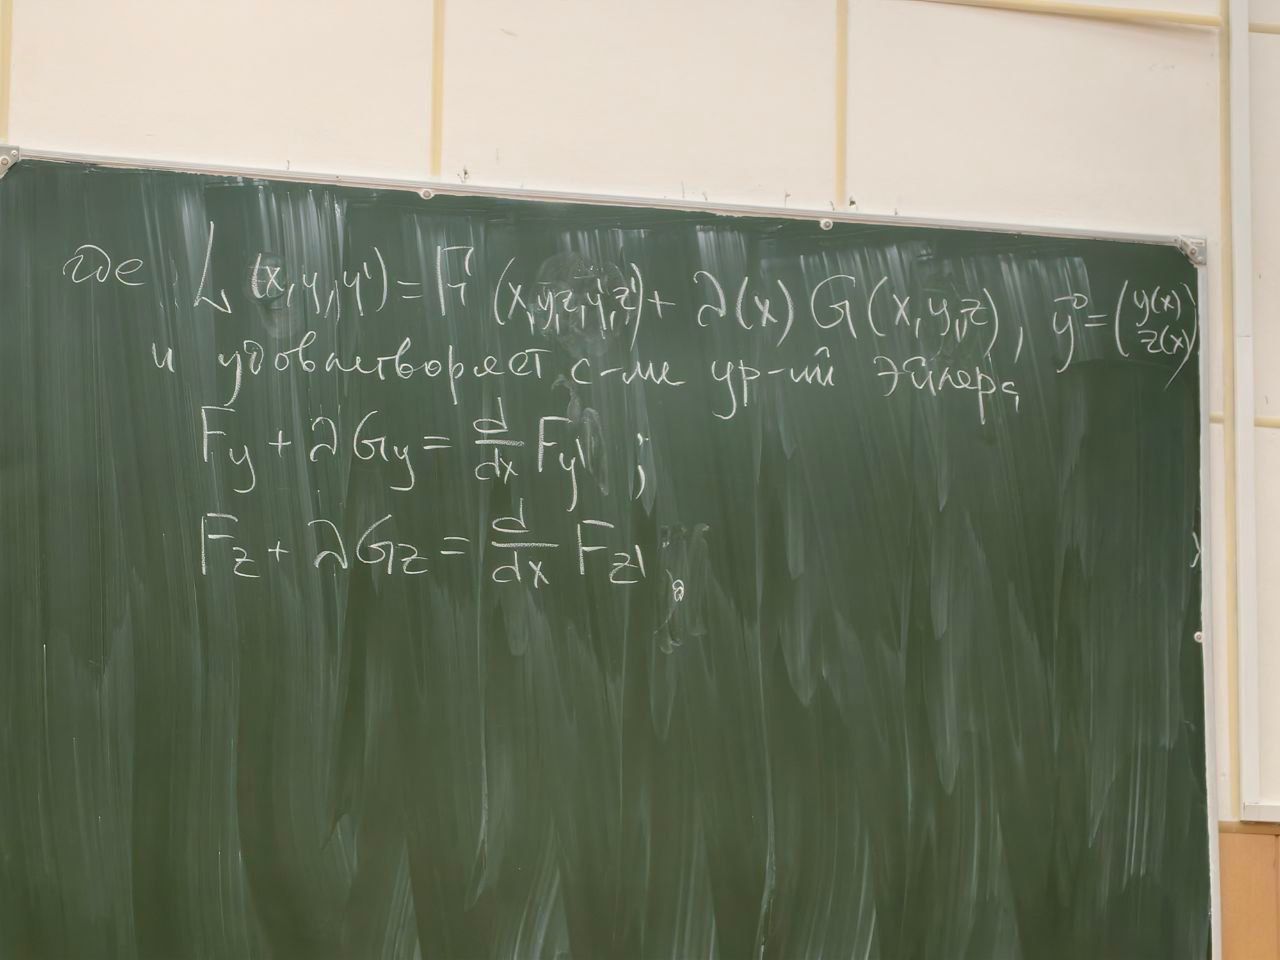 где L (x, y, y') = F (x, y, z, y', z') + λ(x) G (x, y, z), y⃗ = (y(x) z(x))
и удовлетворяет с-ме ур-ий Эйлера
F_y + λ G_y = d/dx F_y' ;
F_z + λ G_z = d/dx F_z' .